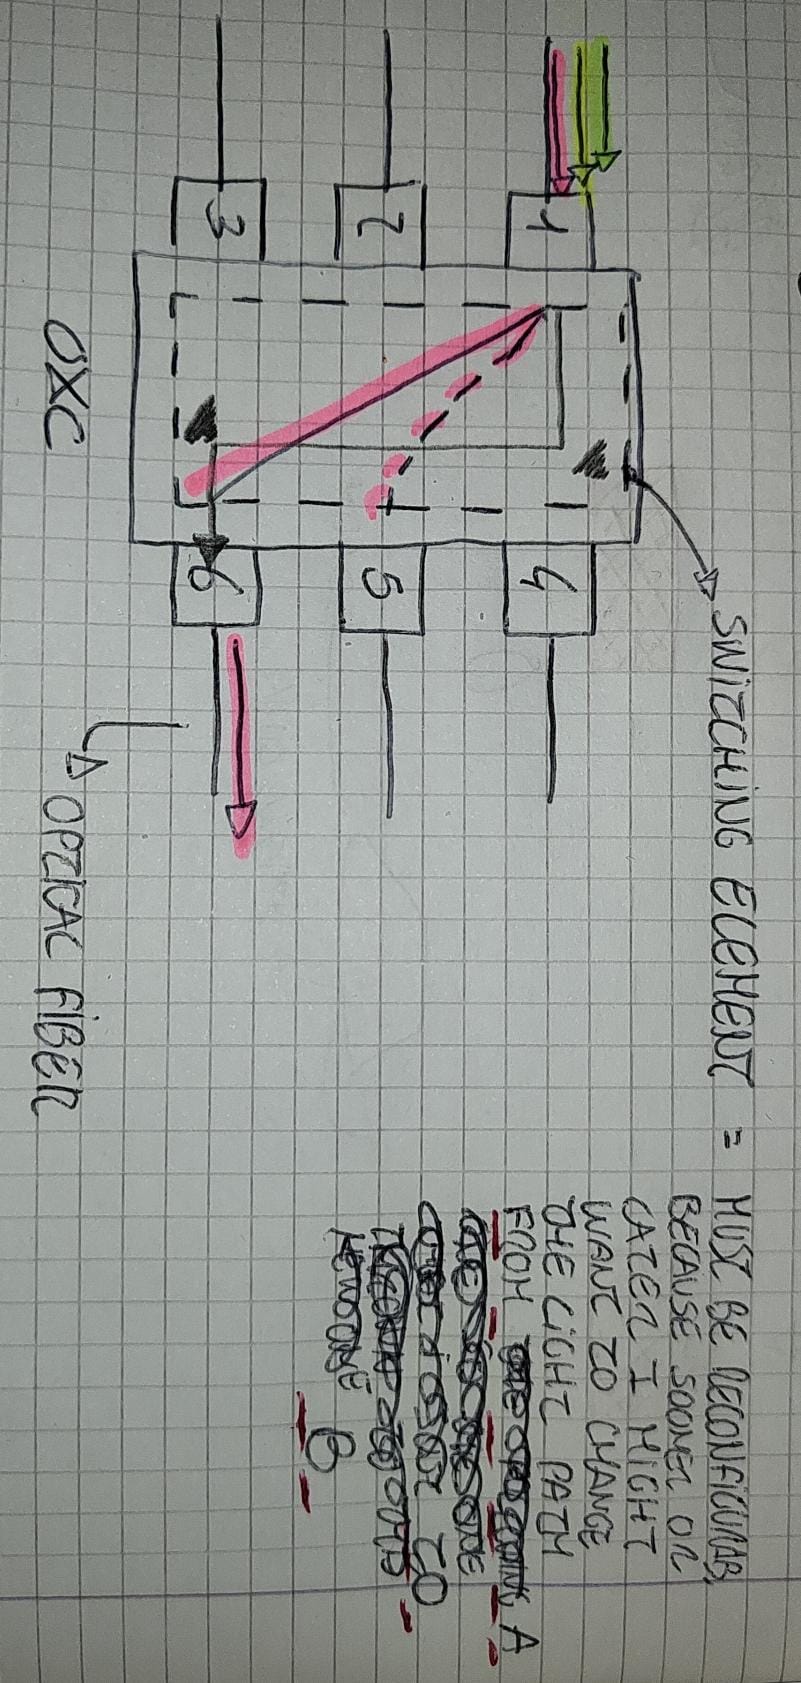 SWITCHING ELEMENT = MUST BE RECONFIGURAB
BECAUSE SOONER OR
LATER I MIGHT
WANT TO CHANGE
THE LIGHT PATH
FROM A
TO
B
1
4
2
5
3
6
OXC
OPTICAL FIBER